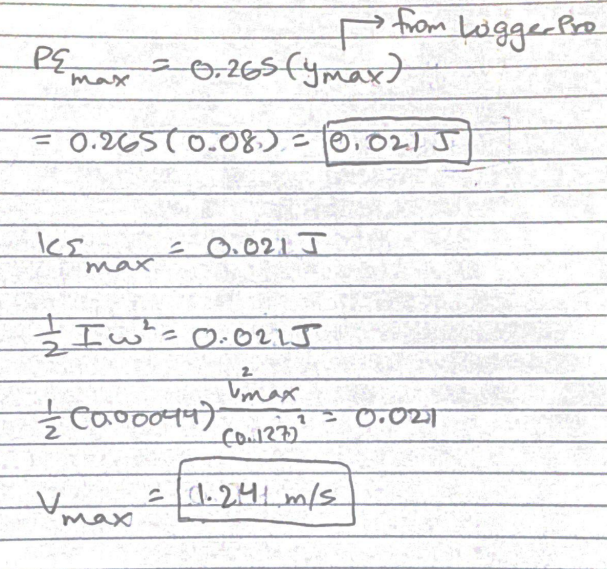 → from LoggerPro
PE max = 0.265 (ymax)
= 0.265 (0.08) = 0.021 J
KE max = 0.021 J
1/2 Iω² = 0.021 J
1/2 (0.00044) V²max / (0.127)² = 0.021
Vmax = 1.241 m/s